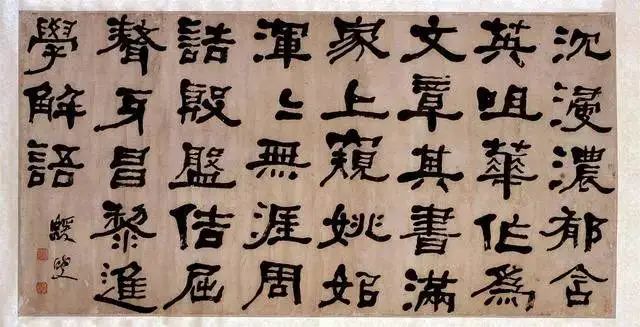 沈浸濃郁含
英咀華作爲
文章其書滿
家上窺姚姒
渾〻無涯周
誥殷盤佶屈
聱牙昌黎進
學解語